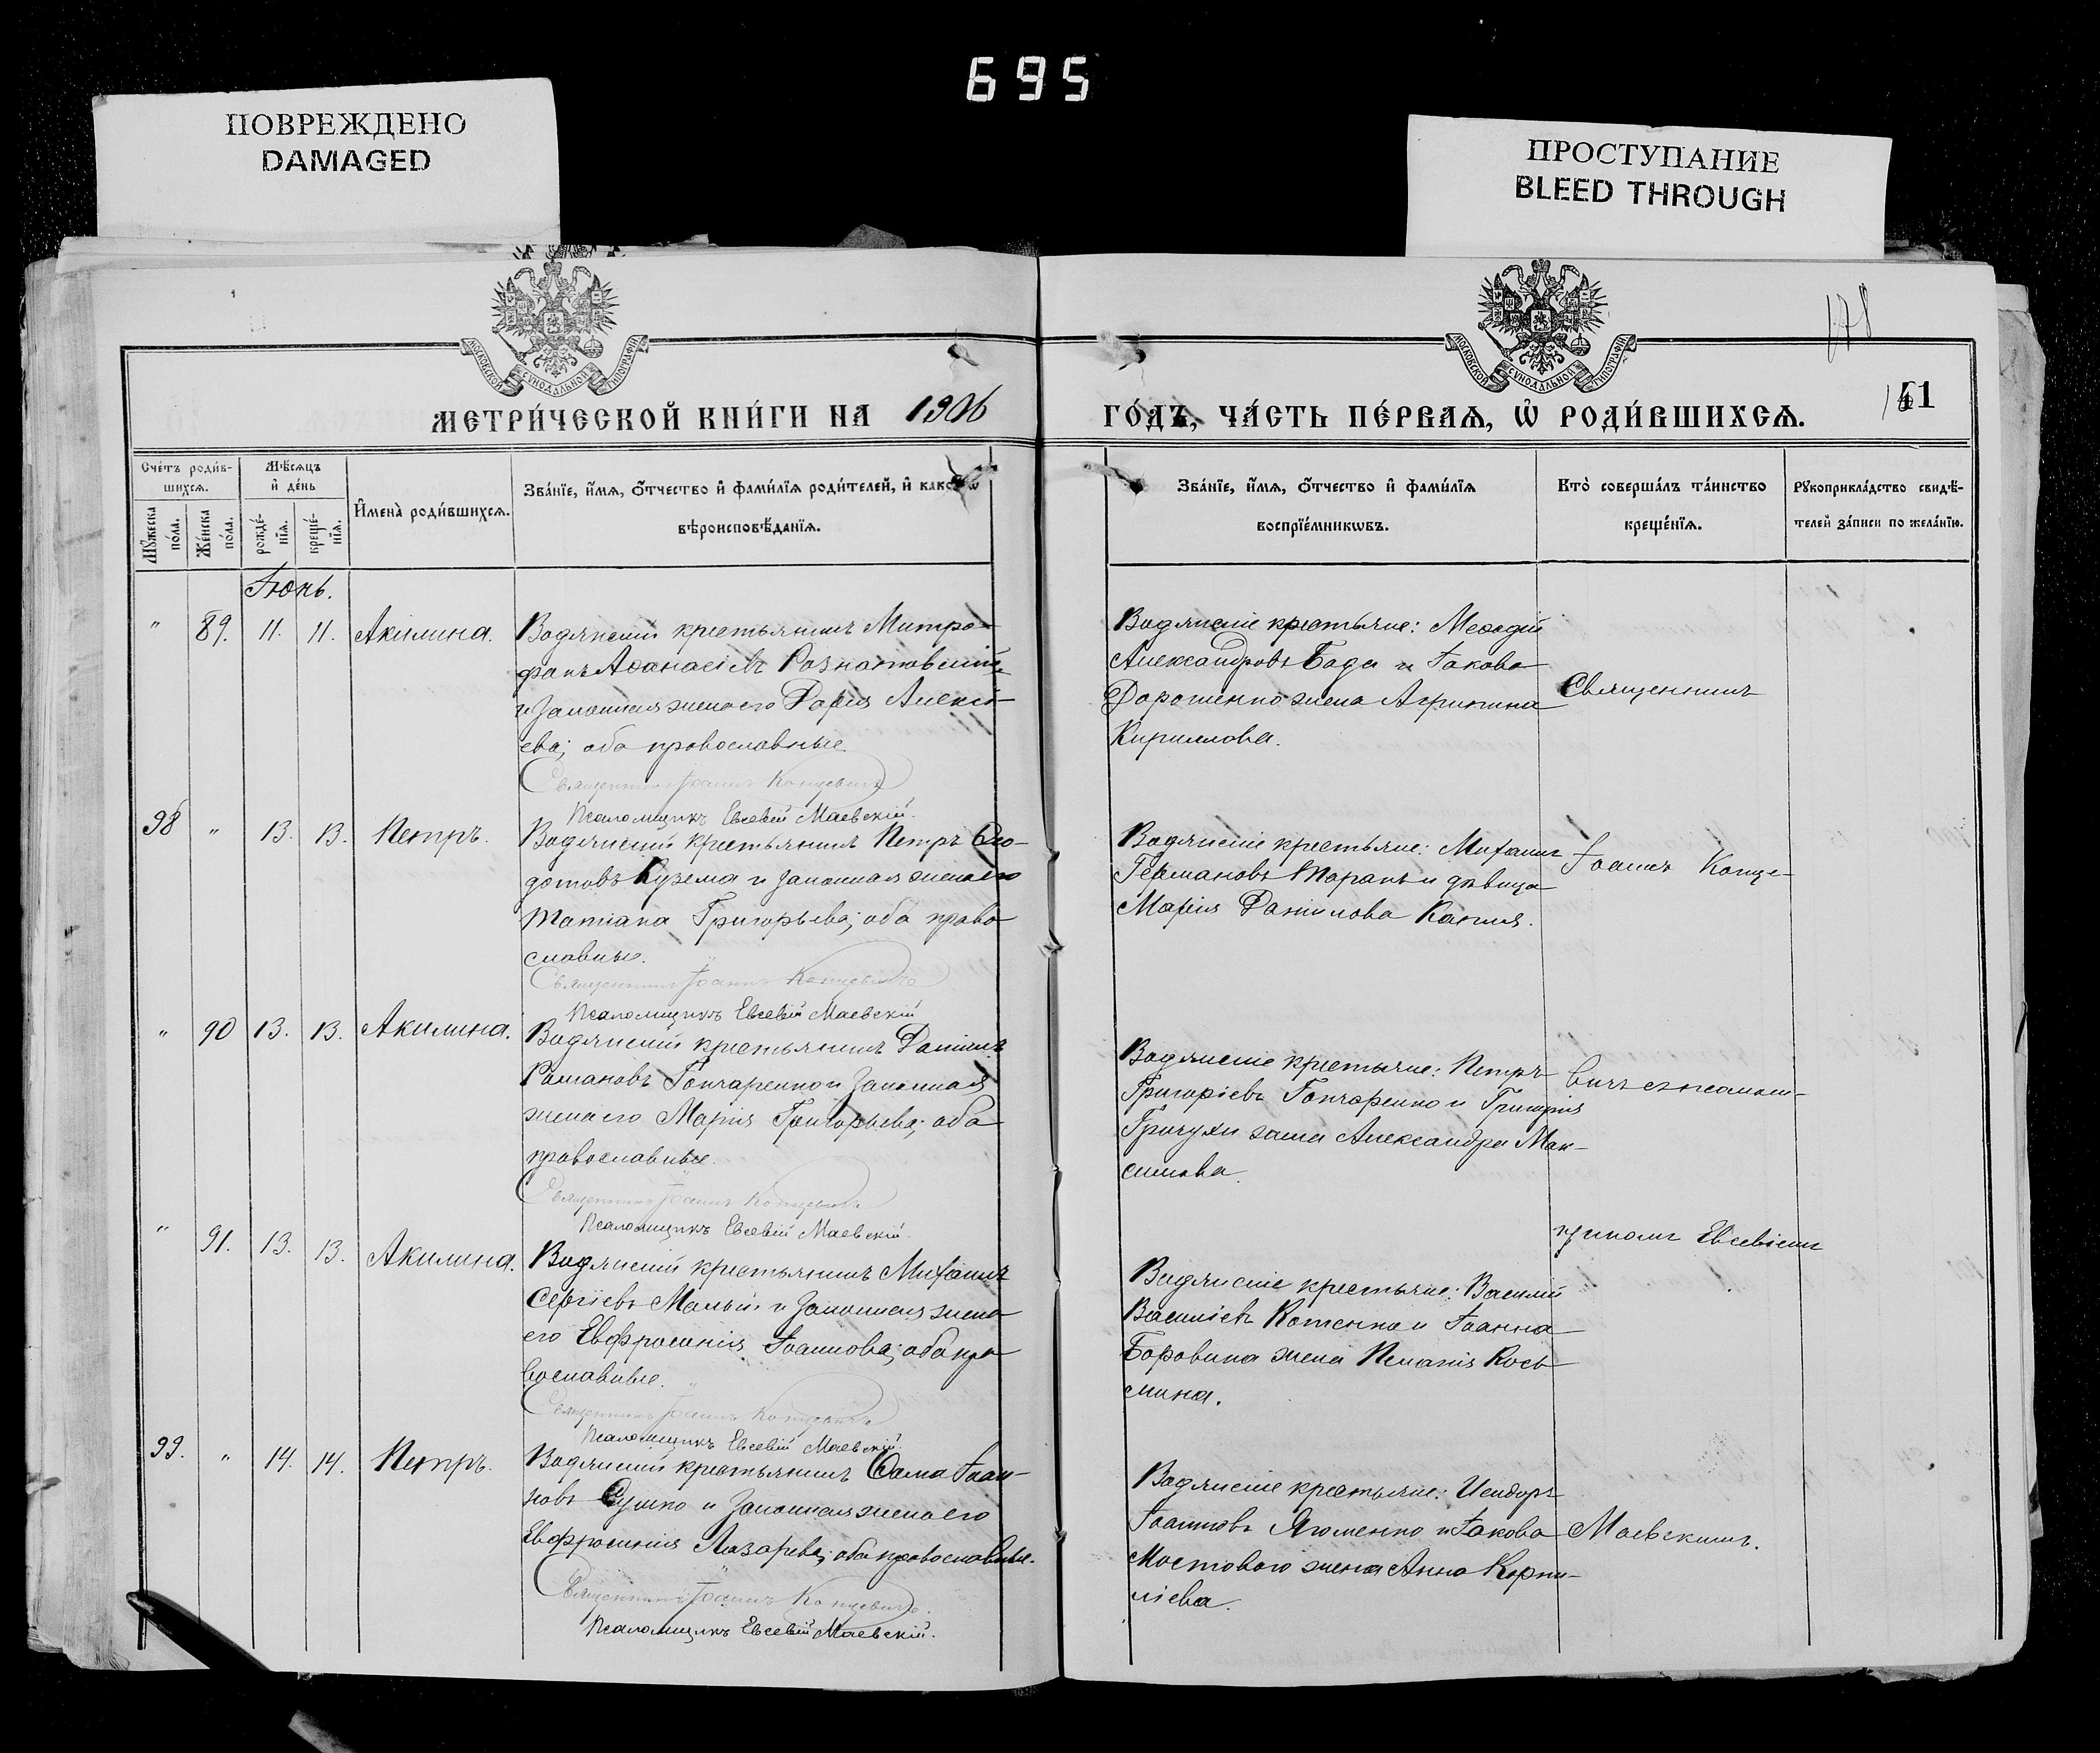 695
ПОВРЕЖДЕНО
DAMAGED
ПРОСТУПАНИЕ
BLEED THROUGH
178
МОСКОВСКОЙ СѴНОДАЛЬНОЙ ТИПОГРАФІИ
МОСКОВСКОЙ СѴНОДАЛЬНОЙ ТИПОГРАФІИ
МЕТРИ́ЧЕСКОЙ КНИ́ГИ НА 1906
ГО́ДЪ, ЧА́СТЬ ПЕ́РВАѦ, Ѽ РОДИ́ВШИХСѦ.
Сче́тъ роди́в-
шихсѧ.
Мѣ́сѧцъ
и҆ де́нь
Мꙋ́жеска по́ла.
Же́нска по́ла.
рожде́-
нїѧ.
креще́-
нїѧ.
И҆мена̀ роди́вшихсѧ.
Зва́нїе, и҆́мѧ, ѻ҆́тчество и҆ фами́лїѧ роди́телей, и҆ како́гѡ
вѣроисповѣ́данїѧ.
Зва́нїе, и҆́мѧ, ѻ҆́тчество и҆ фами́лїѧ
воспрїе́мникѡвъ.
Кто̀ соверша́лъ та́инство
креще́нїѧ.
Рꙋкоприкла́дство свидѣ́-
телей за́писи по жела́нїю.
Іюнь.
" 89. 11. 11. Акилина.
Водянскій крестьянинъ Митро-
фанъ Аѳанасіевъ Рознатовскій
и законная жена его Дарія Алексі-
ева; оба православные.
Священникъ Іоаннъ Концевичъ
Псаломщикъ Евсевій Маевскій.
Водянскіе крестьяне: Меѳодій
Александровъ Бада и Іакова
Дорошенко жена Агрипина
Кириллова.
Священникъ
98 " 13. 13. Петръ.
Водянскій крестьянинъ Петръ Ѳео-
дотовъ Кузема и законная жена его
Татіана Григорьева; оба право-
славные.
Священникъ Іоаннъ Концевичъ
Псаломщикъ Евсевій Маевскій
Водянскіе крестьяне: Михаилъ
Германовъ Таранъ и дѣвица
Марія Данилова Капля.
Іоаннъ Конце-
" 90 13. 13. Акилина.
Водянскій крестьянинъ Даніилъ
Романовъ Гончаренко и законная
жена его Марія Григорьева; оба
православные.
Священникъ Іоаннъ Концевичъ
Псаломщикъ Евсевій Маевскій.
Водянскіе крестьяне: Петръ
Григоріевъ Гончаренко и Григорія
жена Александра Мак-
симова.
вичъ съ псалом-
" 91. 13. 13. Акилина.
Водянскій крестьянинъ Михаилъ
Сергіевъ Малый и законная жена
его Евфросинія Іоаннова; оба пра-
вославные.
Священникъ Іоаннъ Концевичъ
Псаломщикъ Евсевій Маевскій.
Водянскіе крестьяне: Василій
Василіевъ Котенко и Іоанна
Боровика жена Пелагія Кось-
мина.
щикомъ Евсевіемъ
99. " 14. 14. Петръ.
Водянскій крестьянинъ Ѳома Іоан-
новъ Сушко и законная жена его
Евфросинія Лазарева; оба православные.
Священникъ Іоаннъ Концевичъ.
Псаломщикъ Евсевій Маевскій.
Водянскіе крестьяне: Исидоръ
Іоанновъ Яременко и Іакова
Мостового жена Анна Корни-
ліева.
Маевскимъ.